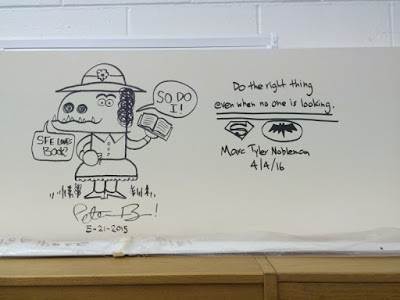 SO DO
I!
SFE LOVES
BOOKS
5-21-2015
Do the right thing
even when no one is looking.
S
Marc Tyler Nobleman
4/4/16